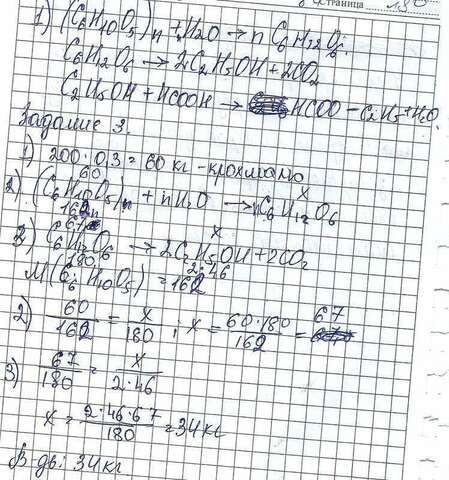 Страница
1) (C6H10O5)n + H2O → n C6H12O6
C6H12O6 → 2C2H5OH + 2CO2
C2H5OH + HCOOH → HCOO-C2H5 + H2O.
Задание 3.
1) 200 · 0,3 = 60 кг - крохмалю
60 x
2) (C6H10O5)n + nH2O → nC6H12O6
162n
67 x
2) C6H12O6 → 2C2H5OH + 2CO2
180 2·46
M(C6H10O5) = 162
2) 60/162 = x/180 ; x = 60·180/162 = 67
3) 67/180 = x/2·46
x = 2·46·67/180 = 34 кг
В-дь: 34 кг